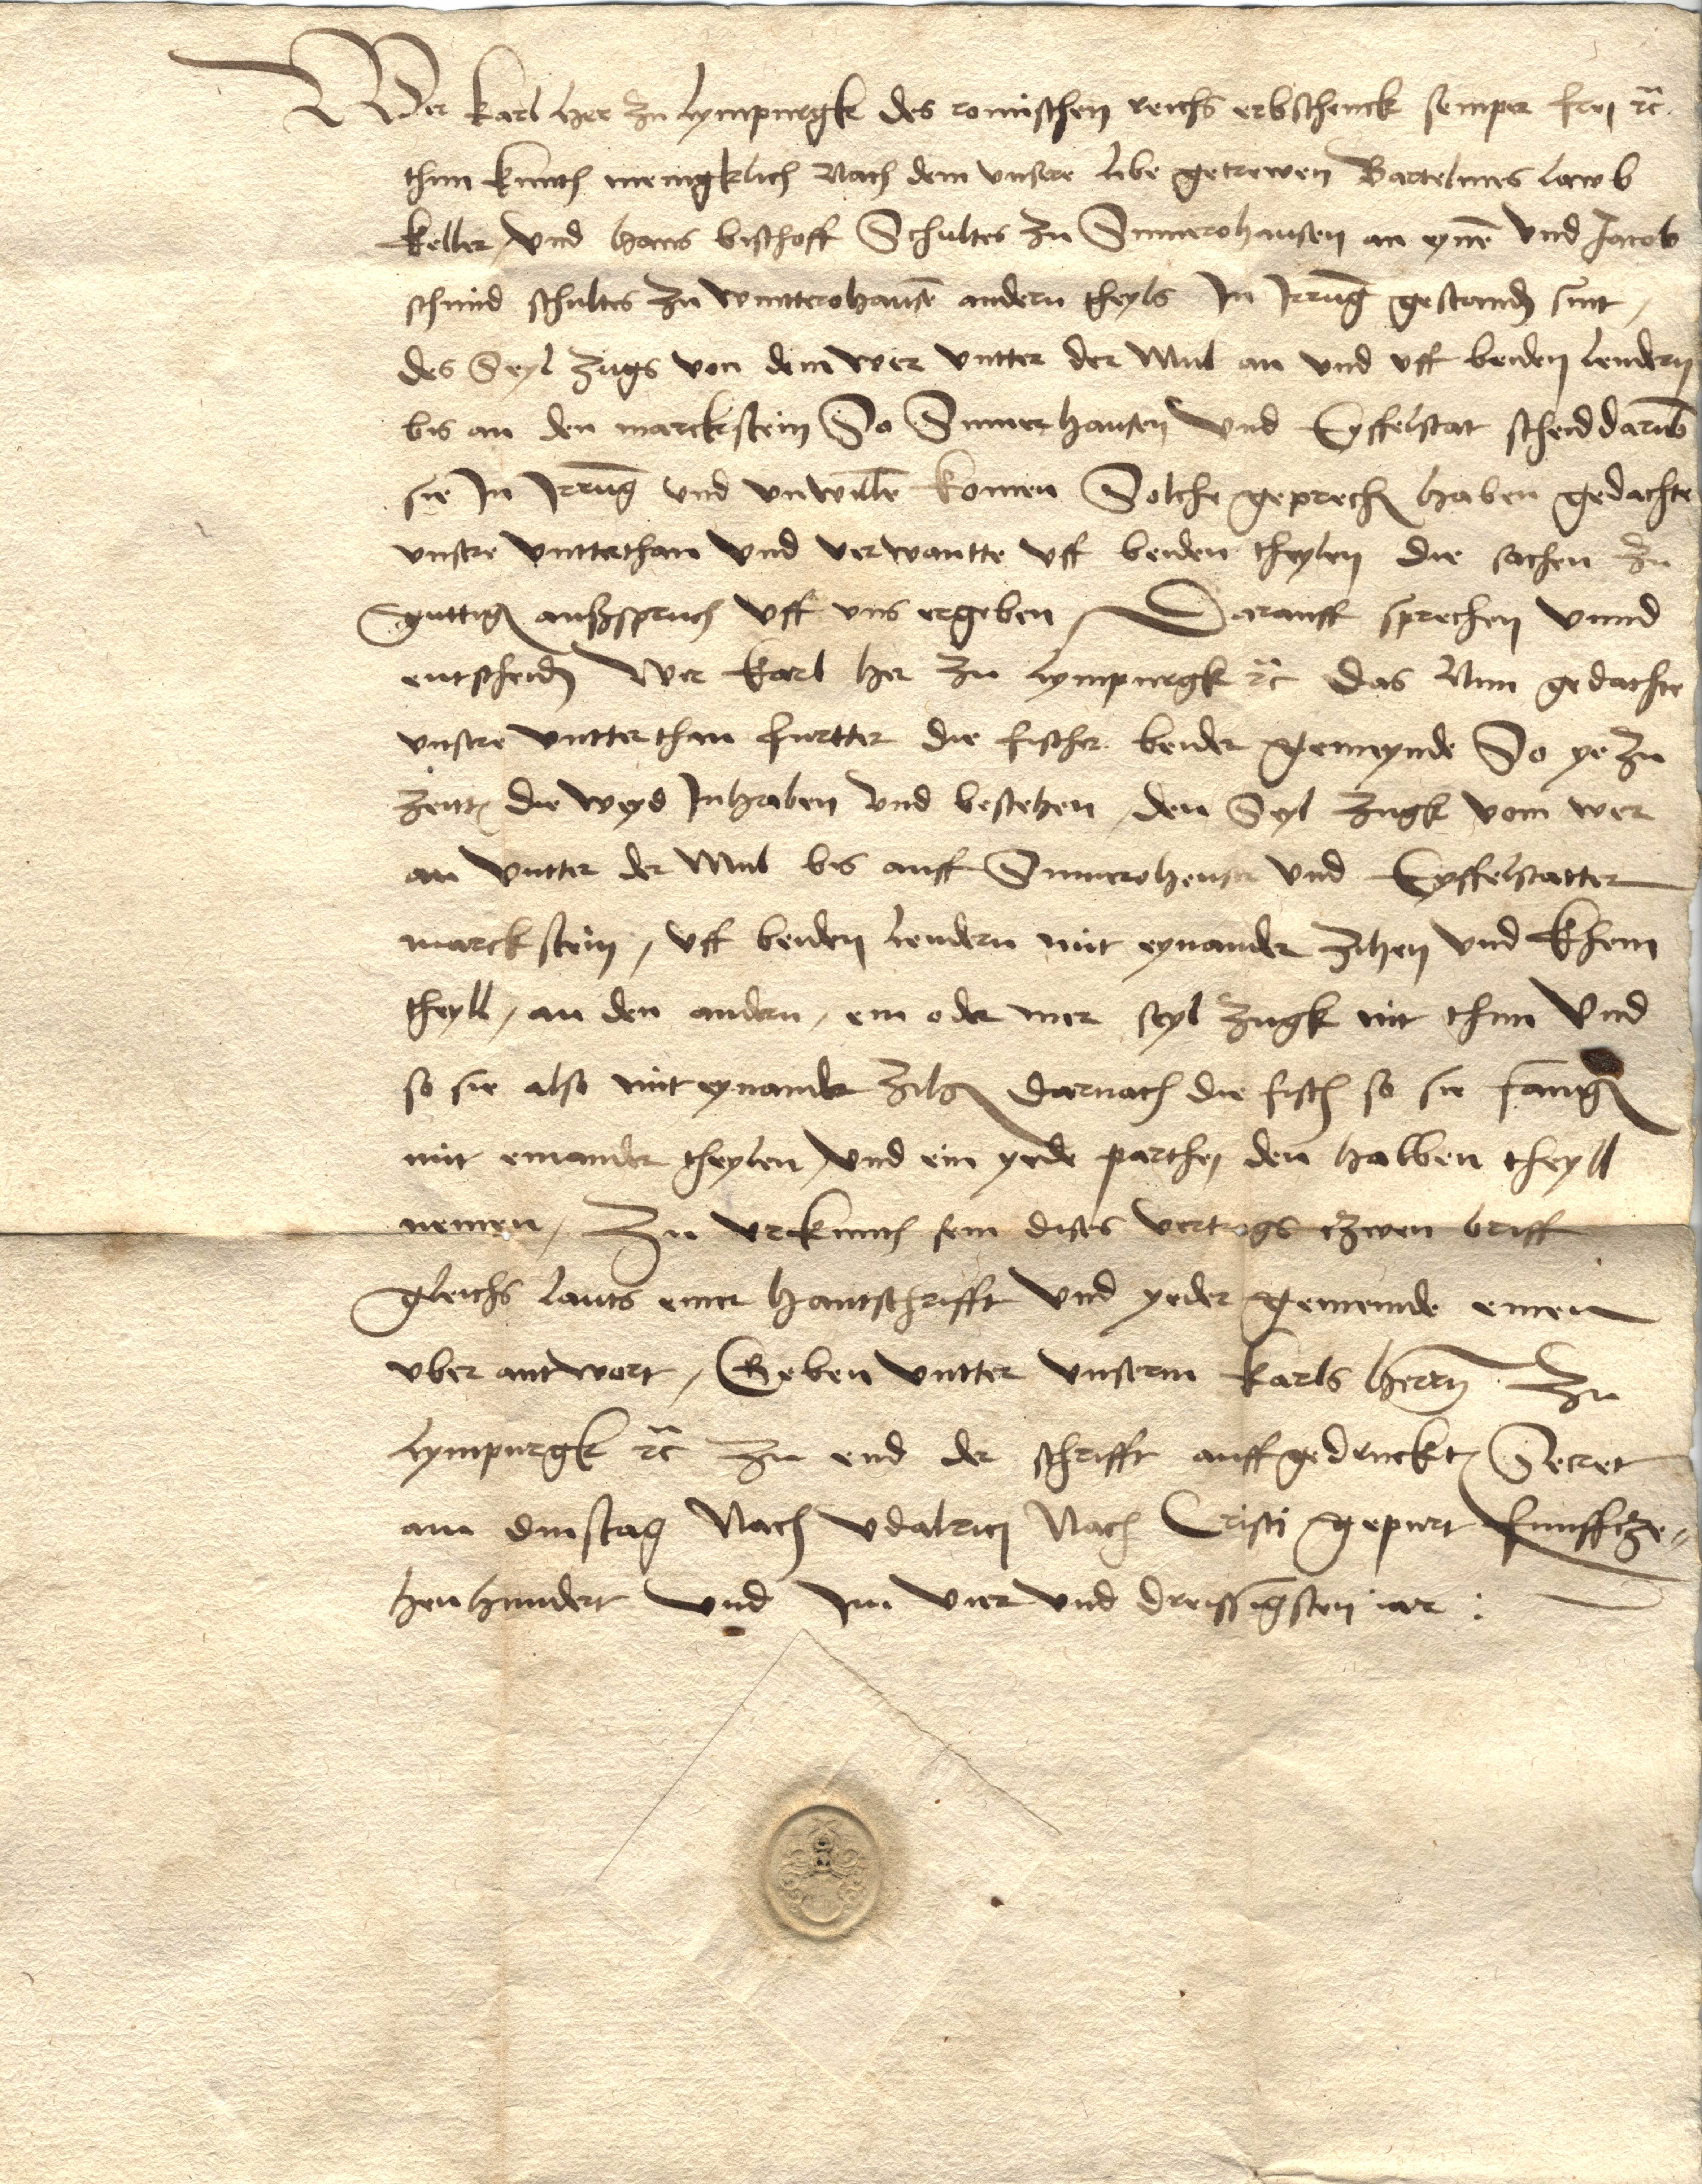 Wir Karl Her zu Lympurgk des romischen reichs erbschenck semper frej rc̃.
thun kunth menigklich Nach dem unsere libe getrewen Bartelmes Lawb
Keller, und Hans bischoff Schultes zu Sumerohausen an eynē und Jacob
schmid schultes zu wintterohausē andern theyls In Irrūg gestandn sint,
des Seyl zugs von dem wer untter der Mul an und uff beiden lendern
bis an den marckstein So Sumerhausen und Eyffelstat scheid darūb
sie In Irrūg und unwillē komen Solche geprechn haben gedachte
unsere untterthan und verwantte uff beiden theylen die sachen zu
guttign außspruch uff uns ergeben / Darauff sprechen unnd
entscheidn Wir Karl her zu Lympurgk rc̃ das Nun gedachte
unsere untterthan furtter die fischer beider gemeynde So ye zu
zeittn die weyd Inhaben und bestehen, den Seyl zugk vom wer
an untter der Mul bis auff Sumeroheuser und Eyffelstatter
marckstein, uff beiden lendern mit eynander zihen und khein
theyll, an den andern, ein oder mer seyl zugk nit thun Und
so sie also mit eynander zihn darnach die fisch so sie fangn
mit einander theylen, und ein yede parthej den halben theyll
nemen, Zu urkunth sein dises vertrags tzwen briff
gleichs lauts einer hantschrifft und yeder gemeinde einen
uber antwort, Geben untter unserm Karls herrn zu
Lympurgk rc̃ zu end der schrifft auffgedruckten Secret
am dinstag Nach Udalricj Nach Cristi gepurt funfftze-
hen hundert und Im vier und dreissigsten jar :